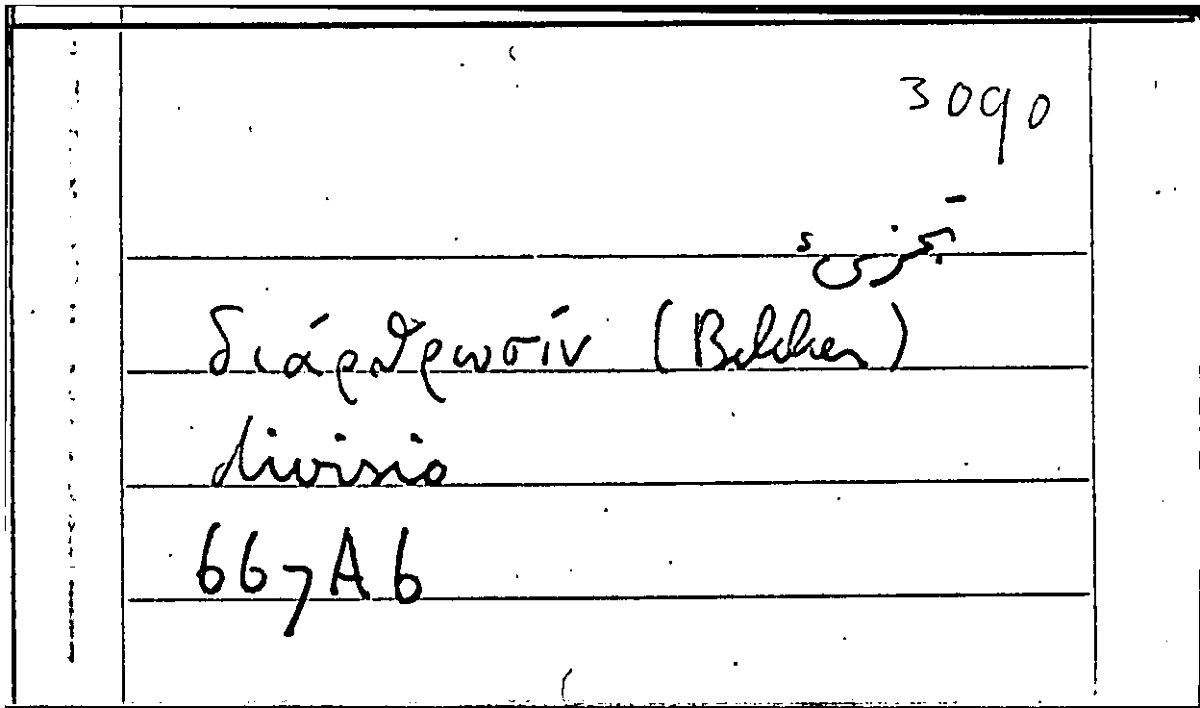 3090
διάρθρωσίν (Bekker)
divisio
667A6